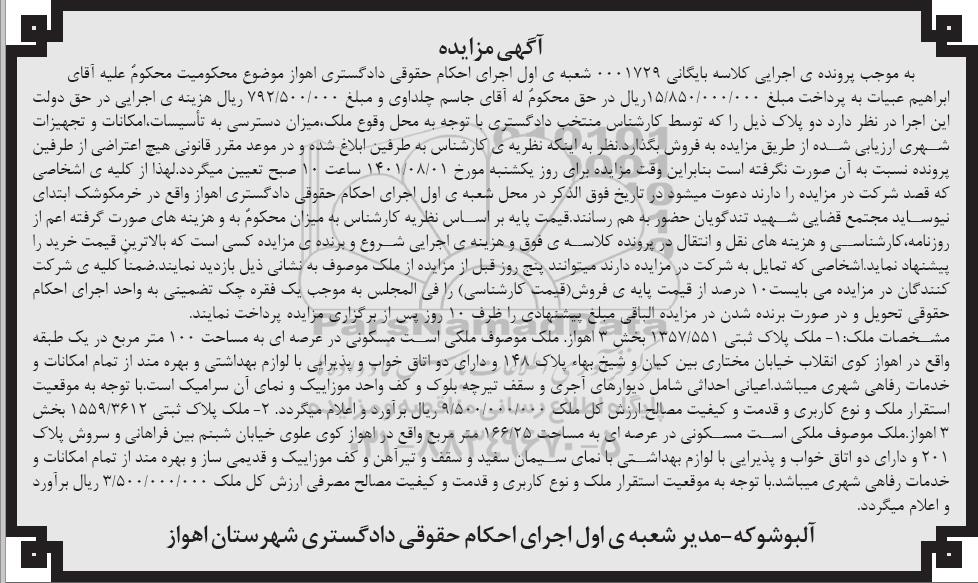 آگهی مزایده
به موجب پرونده ی اجرایی کلاسه بایگانی ۰۰۰۱۷۲۹ شعبه ی اول اجرای احکام حقوقی دادگستری اهواز موضوع محکومیت محکومٌ علیه آقای
ابراهیم عبیات به پرداخت مبلغ ۱۵/۸۵۰/۰۰۰/۰۰۰ریال در حق محکومٌ له آقای جاسم چلداوی و مبلغ ۷۹۲/۵۰۰/۰۰۰ ریال هزینه ی اجرایی در حق دولت
این اجرا در نظر دارد دو پلاک ذیل را که توسط کارشناس منتخب دادگستری با توجه به محل وقوع ملک،میزان دسترسی به تأسیسات،امکانات و تجهیزات
شهری ارزیابی شده از طریق مزایده به فروش بگذارد.نظر به اینکه نظریه ی کارشناس به طرفین ابلاغ شده و در موعد مقرر قانونی هیچ اعتراضی از طرفین
پرونده نسبت به آن صورت نگرفته است بنابراین وقت مزایده برای روز یکشنبه مورخ ۱۴۰۱/۰۸/۰۱ ساعت ۱۰ صبح تعیین میگردد.لهذا از کلیه ی اشخاصی
که قصد شرکت در مزایده را دارند دعوت میشود در تاریخ فوق الذکر در محل شعبه ی اول اجرای احکام حقوقی دادگستری اهواز واقع در خرمکوشک ابتدای
نیوساید مجتمع قضایی شهید تندگویان حضور به هم رسانند.قیمت پایه بر اساس نظریه کارشناس به میزان محکومٌ به و هزینه های صورت گرفته اعم از
روزنامه،کارشناسی و هزینه های نقل و انتقال در پرونده کلاسه ی فوق و هزینه ی اجرایی شروع و برنده ی مزایده کسی است که بالاترین قیمت خرید را
پیشنهاد نماید.اشخاصی که تمایل به شرکت در مزایده دارند میتوانند پنج روز قبل از مزایده از ملک موصوف به نشانی ذیل بازدید نمایند.ضمناً کلیه ی شرکت
کنندگان در مزایده می بایست۱۰ درصد از قیمت پایه ی فروش(قیمت کارشناسی) را فی المجلس به موجب یک فقره چک تضمینی به واحد اجرای احکام
حقوقی تحویل و در صورت برنده شدن در مزایده الباقی مبلغ پیشنهادی را ظرف ۱۰ روز پس از برگزاری مزایده پرداخت نمایند.
مشخصات ملک:۱- ملک پلاک ثبتی ۱۳۵۷/۵۵۱ بخش ۳ اهواز. ملک موصوف ملکی است مسکونی در عرصه ای به مساحت ۱۰۰ متر مربع در یک طبقه
واقع در اهواز کوی انقلاب خیابان مختاری بین کیان و شیخ بهاء پلاک۱۴۸ و دارای دو اتاق خواب و پذیرایی با لوازم بهداشتی و بهره مند از تمام امکانات و
خدمات رفاهی شهری میباشد.اعیانی احداثی شامل دیوارهای آجری و سقف تیرچه بلوک و کف واحد موزاییک و نمای آن سرامیک است.با توجه به موقعیت
استقرار ملک و نوع کاربری و قدمت و کیفیت مصالح ارزش کل ملک ۹/۵۰۰/۰۰۰/۰۰۰ ریال برآورد و اعلام میگردد. ۲- ملک پلاک ثبتی ۱۵۵۹/۳۶۱۲ بخش
۳ اهواز.ملک موصوف ملکی است مسکونی در عرصه ای به مساحت ۱۶۶/۲۵ متر مربع واقع در اهواز کوی علوی خیابان شبنم بین فراهانی و سروش پلاک
۲۰۱ و دارای دو اتاق خواب و پذیرایی با لوازم بهداشتی با نمای سیمان سفید و سقف و تیرآهن و کف موزاییک و قدیمی ساز و بهره مند از تمام امکانات و
خدمات رفاهی شهری میباشد.با توجه به موقعیت استقرار ملک و نوع کاربری و قدمت و کیفیت مصالح مصرفی ارزش کل ملک ۳/۵۰۰/۰۰۰/۰۰۰ ریال برآورد
و اعلام میگردد.
آلبوشوکه-مدیر شعبه ی اول اجرای احکام حقوقی دادگستری شهرستان اهواز
ParsNamadData
۰۲۱-۸۸۳۴۹۶۷۰-۵